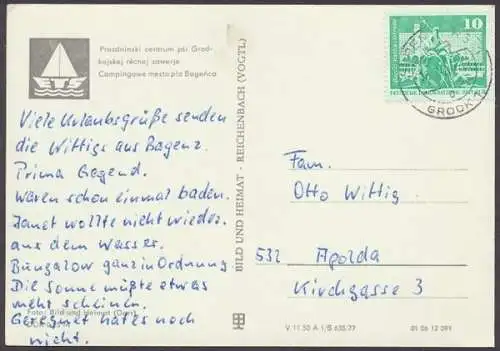 Prazdninski centrum pśi Grod-
kojskej rěcnej zawerje
Campingowe mesto pla Bagenca
Viele Urlaubsgrüße senden
die Wittigs aus Bagenz.
Prima Gegend.
Wären schon einmal baden.
Janet wollte nicht wieder
aus dem Wasser.
Bungalow ganz in Ordnung
Die Sonne müßte etwas
mehr scheinen.
Geregnet hat es noch
nicht.
Foto: Bild und Heimat
BILD UND HEIMAT · REICHENBACH (VOGTL)
V 11 50 A 1/B 635/77
01 06 12 091
10
Fam.
Otto Wittig
532 Apolda
Kirchgasse 3